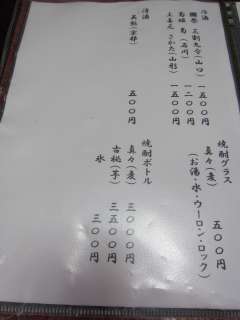 冷酒
獺祭 三割九分(山口) 一五〇〇円
菊姫 菊(石川) 一二〇〇円
上喜元 さかた(山形) 一五〇〇円
清酒
英勲(京都) 五〇〇円
焼酎グラス
真々(麦) 五〇〇円
(お湯・水・ウーロン・ロック)
焼酎ボトル
真々(麦) 三〇〇〇円
古秘(芋) 三五〇〇円
氷 三〇〇円